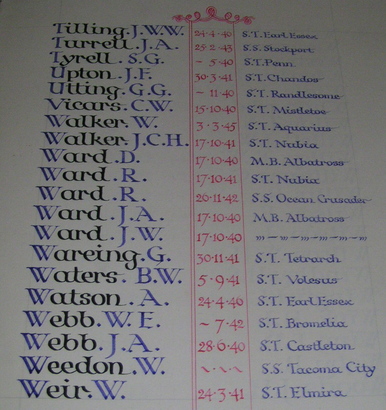 Tilling. J.W.W. 24-4-40 S.T. Earl Essex
Turrell. J.A. 25-2-43 S.S. Stockport
Tyrell. S.G. ~ 5-40 S.T. Penn
Upton. J.F. 30-3-41 S.T. Chandos
Utting. G.G. ~ 11-40 S.T. Randlesome
Vicars. C.W. 15-10-40 S.T. Mistletoe
Walker. W. 3-3-45 S.T. Aquarius
Walker. J.C.H. 17-10-41 S.T. Nubia
Ward. D. 17-10-40 M.B. Albatross
Ward. R. 17-10-41 S.T. Nubia
Ward. R. 20-11-42 S.S. Ocean Crusader
Ward. J.A. 17-10-40 M.B. Albatross
Ward. J.W. 17-10-40 " — " — " — " — "
Wareing. G. 30-11-41 S.T. Tetrarch
Waters. B.W. 5-9-41 S.T. Volesus
Watson. A. 24-4-40 S.T. Earl Essex
Webb. W.E. ~ 7-42 S.T. Bromelia
Webb. J.A. 28-6-40 S.T. Castleton
Weedon. W. ~ ~ ~ S.S. Tacoma City
Weir. W. 24-3-41 S.T. Elmira